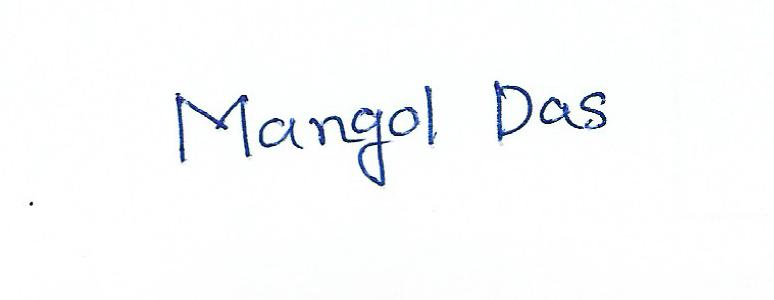 Mangol Das